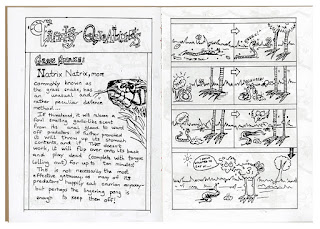 Family Quarters
Grass Snake:
Natrix Natrix, more
commonly known as
the grass snake, has
an unusual and
rather peculiar defence
method...
If threatened, it will release a
foul smelling garlic-like scent
from its anal glands to ward
off predators. If further provoked
it will throw up its stomach
contents, and if THAT doesn't
work, it will flip over onto its back
and play dead (complete with tongue
lolling out) for up to ten minutes!
This is not necessarily the most
effective getaway as many of its
predators happily eat carrion anyway-
but perhaps the lingering pong is
enough to keep them off!